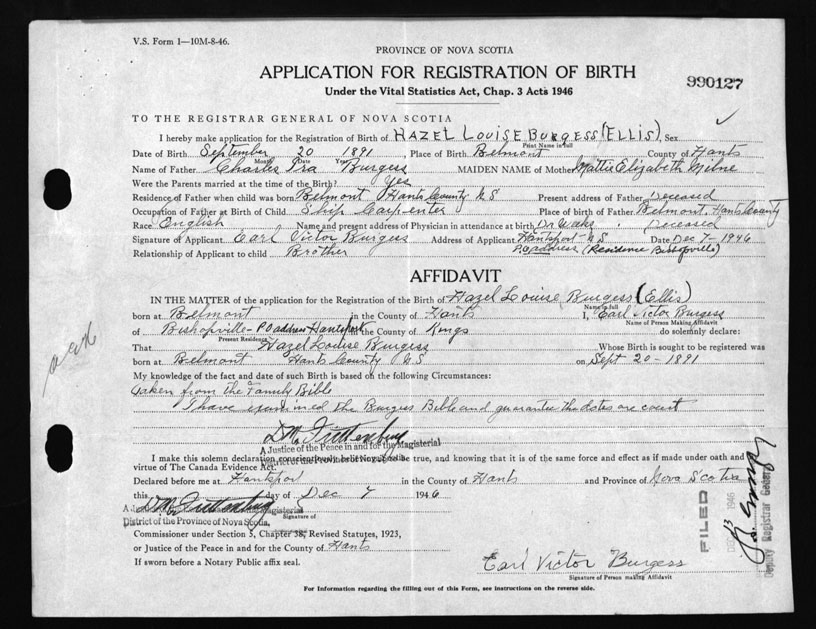 V.S. Form 1—10M-8-46.
PROVINCE OF NOVA SCOTIA
APPLICATION FOR REGISTRATION OF BIRTH
990127
Under the Vital Statistics Act, Chap. 3 Acts 1946
TO THE REGISTRAR GENERAL OF NOVA SCOTIA
I hereby make application for the Registration of Birth of HAZEL LOUISE BURGESS (ELLIS) Sex
Print Name in full
Date of Birth September 20 1891 Place of Birth Belmont County of Hants
Month Date Year
Name of Father Charles Ira Burgess MAIDEN NAME of Mother Mattie Elizabeth Milne
Were the Parents married at the time of the Birth? Yes
Residence of Father when child was born Belmont Hants County N S Present address of Father Deceased
Occupation of Father at Birth of Child Ship Carpenter Place of birth of Father Belmont, Hants County
Race English Name and present address of Physician in attendance at birth Dr Deceased
Signature of Applicant Earl Victor Burgess Address of Applicant Hantsport N S Date Dec 7 - 1946
Relationship of Applicant to child Brother P.O address (Residence Bishopville)
AFFIDAVIT
IN THE MATTER of the application for the Registration of the Birth of Hazel Louise Burgess (Ellis)
Name in full
born at Belmont in the County of Hants I, Earl Victor Burgess
Name of Person Making Affidavit
of Bishopville - P O address Hantsport in the County of Kings do solemnly declare:
Present Residence
That Hazel Louise Burgess Whose Birth is sought to be registered was
born at Belmont Hants County N S on Sept 20 - 1891
My knowledge of the fact and date of such Birth is based on the following Circumstances:
Taken from the Family Bible
I have examined the Burgess Bible and guarantee the dates are
A Justice of the Peace in and for the Magisterial
District of the Province of Nova Scotia
I make this solemn declaration conscientiously believing it to be true, and knowing that it is of the same force and effect as if made under oath and
virtue of The Canada Evidence Act.
Declared before me at Hantsport in the County of Hants and Province of Nova Scotia
this day of Dec 7 1946
District of the Province of Nova Scotia,
Signature of
Commissioner under Section 5, Chapter 38, Revised Statutes, 1923,
or Justice of the Peace in and for the County of Hants
If sworn before a Notary Public affix seal.
Earl Victor Burgess
Signature of Person making Affidavit
FILED
1946
Deputy Registrar General
For Information regarding the filling out of this Form, see instructions on the reverse side.